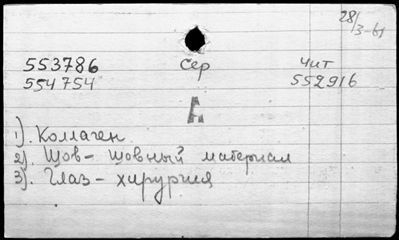 28/3-61
553786 Сер Чит
554754 552916
А
1). Коллаген
2). Шов - шовный материал
3). Глаз - хирургия